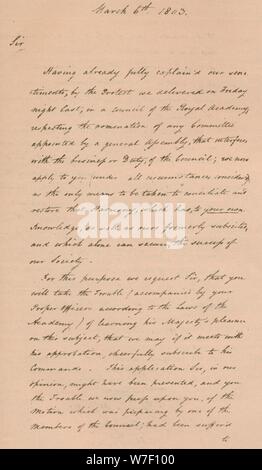 March 6th 1803.
Sir
Having already fully explain'd our sen-
timents, by the Protest we delivered on Friday
night last, in a council of the Royal Academy,
respecting the nomination of any Committee
appointed by a general Assembly, that interferes
with the business or Duty, of the Council; we now
apply to you (under all circumstances considering
as the only means to be taken to conciliate and
restore that Harmony, which has, to your own
Knowledge as well as ours formerly subsisted,
and which alone can secure the success of
our Society.
For this purpose we request Sir, that you
will take the Trouble (accompanied by your
Proper Officer according to the Laws of the
Academy) of learning his Majesty's pleasure
on this subject, that we may if it meets with
his approbation, cheerfully subscribe to his
Commands. This application Sir, in our
opinion, might have been prevented, and you
the Trouble we now press upon you, if the
Motion which was preparing by one of the
members of the Council, had been suffer'd
to
alamy
Image ID: W7F100
www.alamy.com